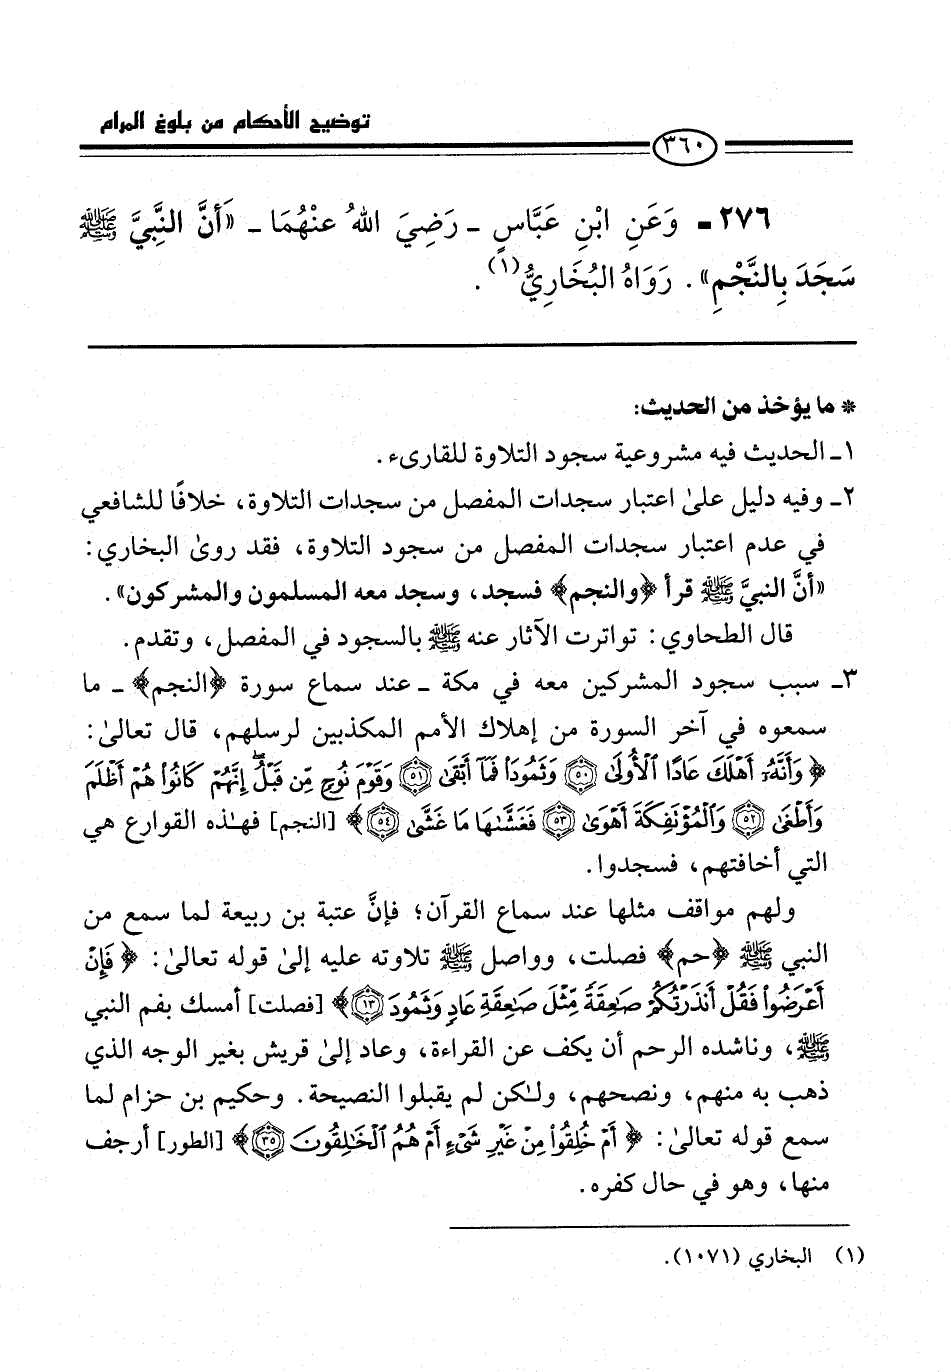 توضيح الأحكام من بلوغ المرام
٣٦٠
٢٧٦ـ وَعَنِ ابْنِ عَبَّاسٍ ـ رَضِيَ اللهُ عَنْهُمَا ـ «أَنَّ النَّبِيَّ ﷺ
سَجَدَ بِالنَّجْمِ». رَوَاهُ البُخَارِيُّ(١).
* ما يؤخذ من الحديث:
١ـ الحديث فيه مشروعية سجود التلاوة للقارىء.
٢ـ وفيه دليل علىٰ اعتبار سجدات المفصل من سجدات التلاوة، خلافًا للشافعي
في عدم اعتبار سجدات المفصل من سجود التلاوة، فقد روىٰ البخاري:
«أنَّ النبيَّ ﷺ قرأ ﴿والنجم﴾ فسجد، وسجد معه المسلمون والمشركون».
قال الطحاوي: تواترت الآثار عنه ﷺ بالسجود في المفصل، وتقدم.
٣ـ سبب سجود المشركين معه في مكة ـ عند سماع سورة ﴿النجم﴾ ـ ما
سمعوه في آخر السورة من إهلاك الأمم المكذبين لرسلهم، قال تعالىٰ:
﴿ وَأَنَّهُۥٓ أَهْلَكَ عَادًا ٱلْأُولَىٰ ۝٥٠ وَثَمُودَا۟ فَمَآ أَبْقَىٰ ۝٥١ وَقَوْمَ نُوحٍ مِّن قَبْلُ ۖ إِنَّهُمْ كَانُوا۟ هُمْ أَظْلَمَ
وَأَطْغَىٰ ۝٥٢ وَٱلْمُؤْتَفِكَةَ أَهْوَىٰ ۝٥٣ فَغَشَّىٰهَا مَا غَشَّىٰ ۝٥٤ ﴾ [النجم] فهـٰذه القوارع هي
التي أخافتهم، فسجدوا.
ولهم مواقف مثلها عند سماع القرآن؛ فإنَّ عتبة بن ربيعة لما سمع من
النبي ﷺ ﴿حم﴾ فصلت، وواصل ﷺ تلاوته عليه إلىٰ قوله تعالىٰ: ﴿ فَإِنْ
أَعْرَضُوا۟ فَقُلْ أَنذَرْتُكُمْ صَٰعِقَةً مِّثْلَ صَٰعِقَةِ عَادٍ وَثَمُودَ ۝١٣﴾ [فصلت] أمسك بفم النبي
ﷺ، وناشده الرحم أن يكف عن القراءة، وعاد إلىٰ قريش بغير الوجه الذي
ذهب به منهم، ونصحهم، ولـٰكن لم يقبلوا النصيحة. وحكيم بن حزام لما
سمع قوله تعالىٰ: ﴿ أَمْ خُلِقُوا۟ مِنْ غَيْرِ شَىْءٍ أَمْ هُمُ ٱلْخَٰلِقُونَ ۝٣٥﴾ [الطور] أرجف
منها، وهو في حال كفره.
(١) البخاري (١٠٧١).